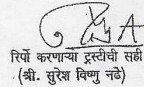 रिपोर्ट करणाऱ्या ट्रस्टीची सही
(श्री. सुरेश विष्णु नढे)